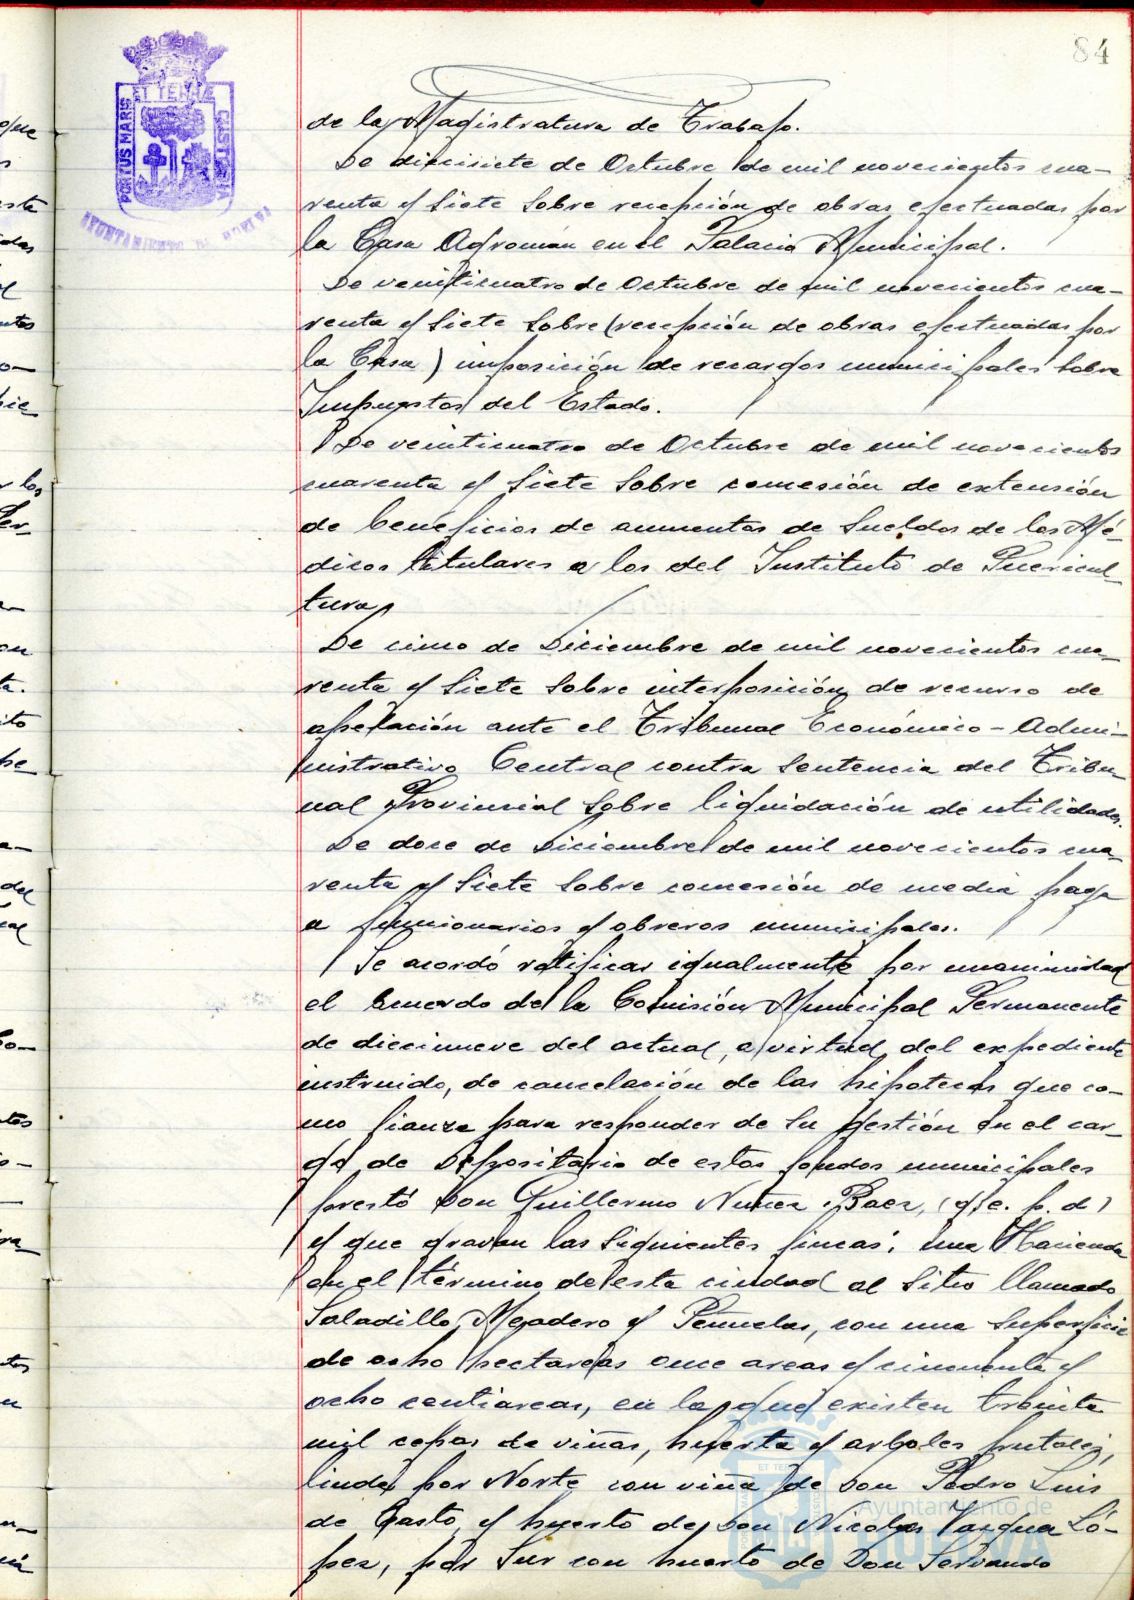 84
PORTUS MARIS ET TERRÆ CUSTODIA
AYUNTAMIENTO DE HUELVA
de la Magistratura de Trabajo.
De diecisiete de Octubre de mil novecientos cua-
renta y siete sobre recepción de obras efectuadas por
la Casa Agromán en el Palacio Municipal.
De veinticuatro de Octubre de mil novecientos cua-
renta y siete sobre (recepción de obras efectuadas por
la Casa) imposición de recargos municipales sobre
Impuestos del Estado.
De veinticuatro de Octubre de mil novecientos
cuarenta y siete sobre concesión de extensión
de beneficios de aumentos de sueldos de los Mé-
dicos titulares a los del Instituto de Puericul-
tura,
De cinco de Diciembre de mil novecientos cua-
renta y siete sobre interposición de recurso de
apelación ante el Tribunal Económico-Admi-
nistrativo Central contra sentencia del Tribu-
nal Provincial sobre liquidación de utilidades.
De doce de Diciembre de mil novecientos cua-
renta y siete sobre concesión de media paga
a funcionarios y obreros municipales.
Se acordó ratificar igualmente por unanimidad
el acuerdo de la Comisión Municipal Permanente
de diecinueve del actual, a virtud del expediente
instruido, de cancelación de las hipotecas que co-
mo fianza para responder de su gestión en el car-
go de Depositario de estos fondos municipales
prestó Don Guillermo Nuñez Baez, (q. e. p. d)
y que gravan las siguientes fincas: una Hacienda
en el término de esta ciudad al sitio llamado
Saladillo, Mojadero y Peñuelas, con una superficie
de ocho hectareas once areas y cincuenta y
ocho centiareas, en la que existen treinta
mil cepas de viñas, huerta y arboles frutales,
linda por Norte con viña de Don Pedro Luis
de Gasto y huerto de Don Nicolas Vazquez Ló-
pez, por Sur con huerto de Don Servando
Ayuntamiento de
HUELVA